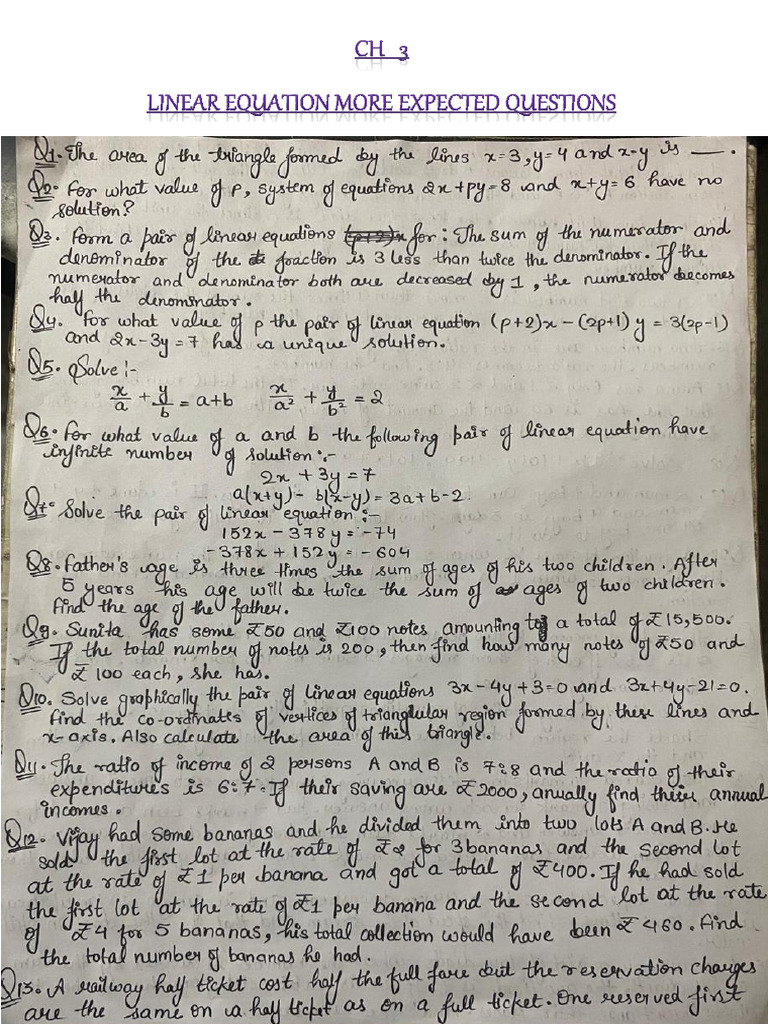 CH 3
LINEAR EQUATION MORE EXPECTED QUESTIONS
Q1. The area of the triangle formed by the lines x=3, y=4 and x=y is —.
Q2. For what value of p, system of equations 2x+py=8 and x+y=6 have no
solution?
Q3. Form a pair of linear equations for: The sum of the numerator and
denominator of the fraction is 3 less than twice the denominator. If the
numerator and denominator both are decreased by 1, the numerator becomes
half the denominator.
Q4. For what value of p the pair of linear equation (p+2)x-(2p+1)y = 3(2p-1)
and 2x-3y=7 has a unique solution.
Q5. Solve:-
x/a + y/b = a+b x/a² + y/b² = 2
Q6. For what value of a and b the following pair of linear equation have
infinite number of solution:-
2x + 3y = 7
a(x+y)- b(x-y)=3a+b-2
Q7. Solve the pair of linear equation:-
152x - 378y = -74
-378x + 152y = -604
Q8. Father's age is three times the sum of ages of his two children. After
5 years his age will be twice the sum of ages of two children.
Find the age of the father.
Q9. Sunita has some ₹50 and ₹100 notes amounting to a total of ₹15,500.
If the total number of notes is 200, then find how many notes of ₹50 and
₹100 each, she has.
Q10. Solve graphically the pair of linear equations 3x-4y+3=0 and 3x+4y-21=0.
Find the co-ordinates of vertices of triangular region formed by these lines and
x-axis. Also calculate the area of this triangle.
Q11. The ratio of income of 2 persons A and B is 7:8 and the ratio of their
expenditures is 6:7. If their saving are ₹2000, anually find their annual
incomes.
Q12. Vijay had some bananas and he divided them into two lots A and B. He
sold the first lot at the rate of ₹2 for 3 bananas and the second lot
at the rate of ₹1 per banana and got a total of ₹400. If he had sold
the first lot at the rate of ₹1 per banana and the second lot at the rate
of ₹4 for 5 bananas, his total collection would have been ₹460. Find
the total number of bananas he had.
Q13. A railway half ticket cost half the full fare but the reservation charges
are the same on a half ticket as on a full ticket. One reserved first